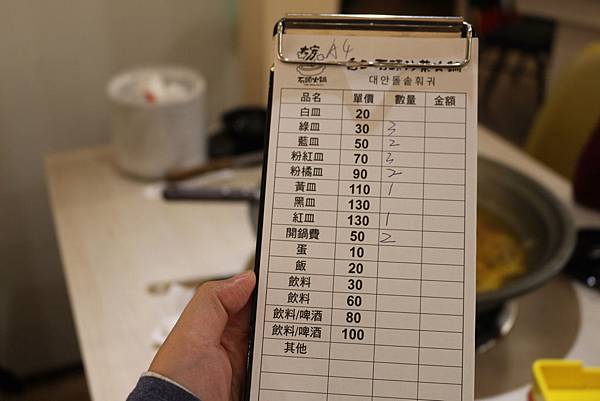 A4
石頭火鍋
대안돌솥훠궈
品名 單價 數量 金額
白皿 20
綠皿 30 3
藍皿 50 2
粉紅皿 70 3
粉橘皿 90 2
黃皿 110 1
黑皿 130
紅皿 130 1
開鍋費 50 2
蛋 10
飯 20
飲料 30
飲料 60
飲料/啤酒 80
飲料/啤酒 100
其他